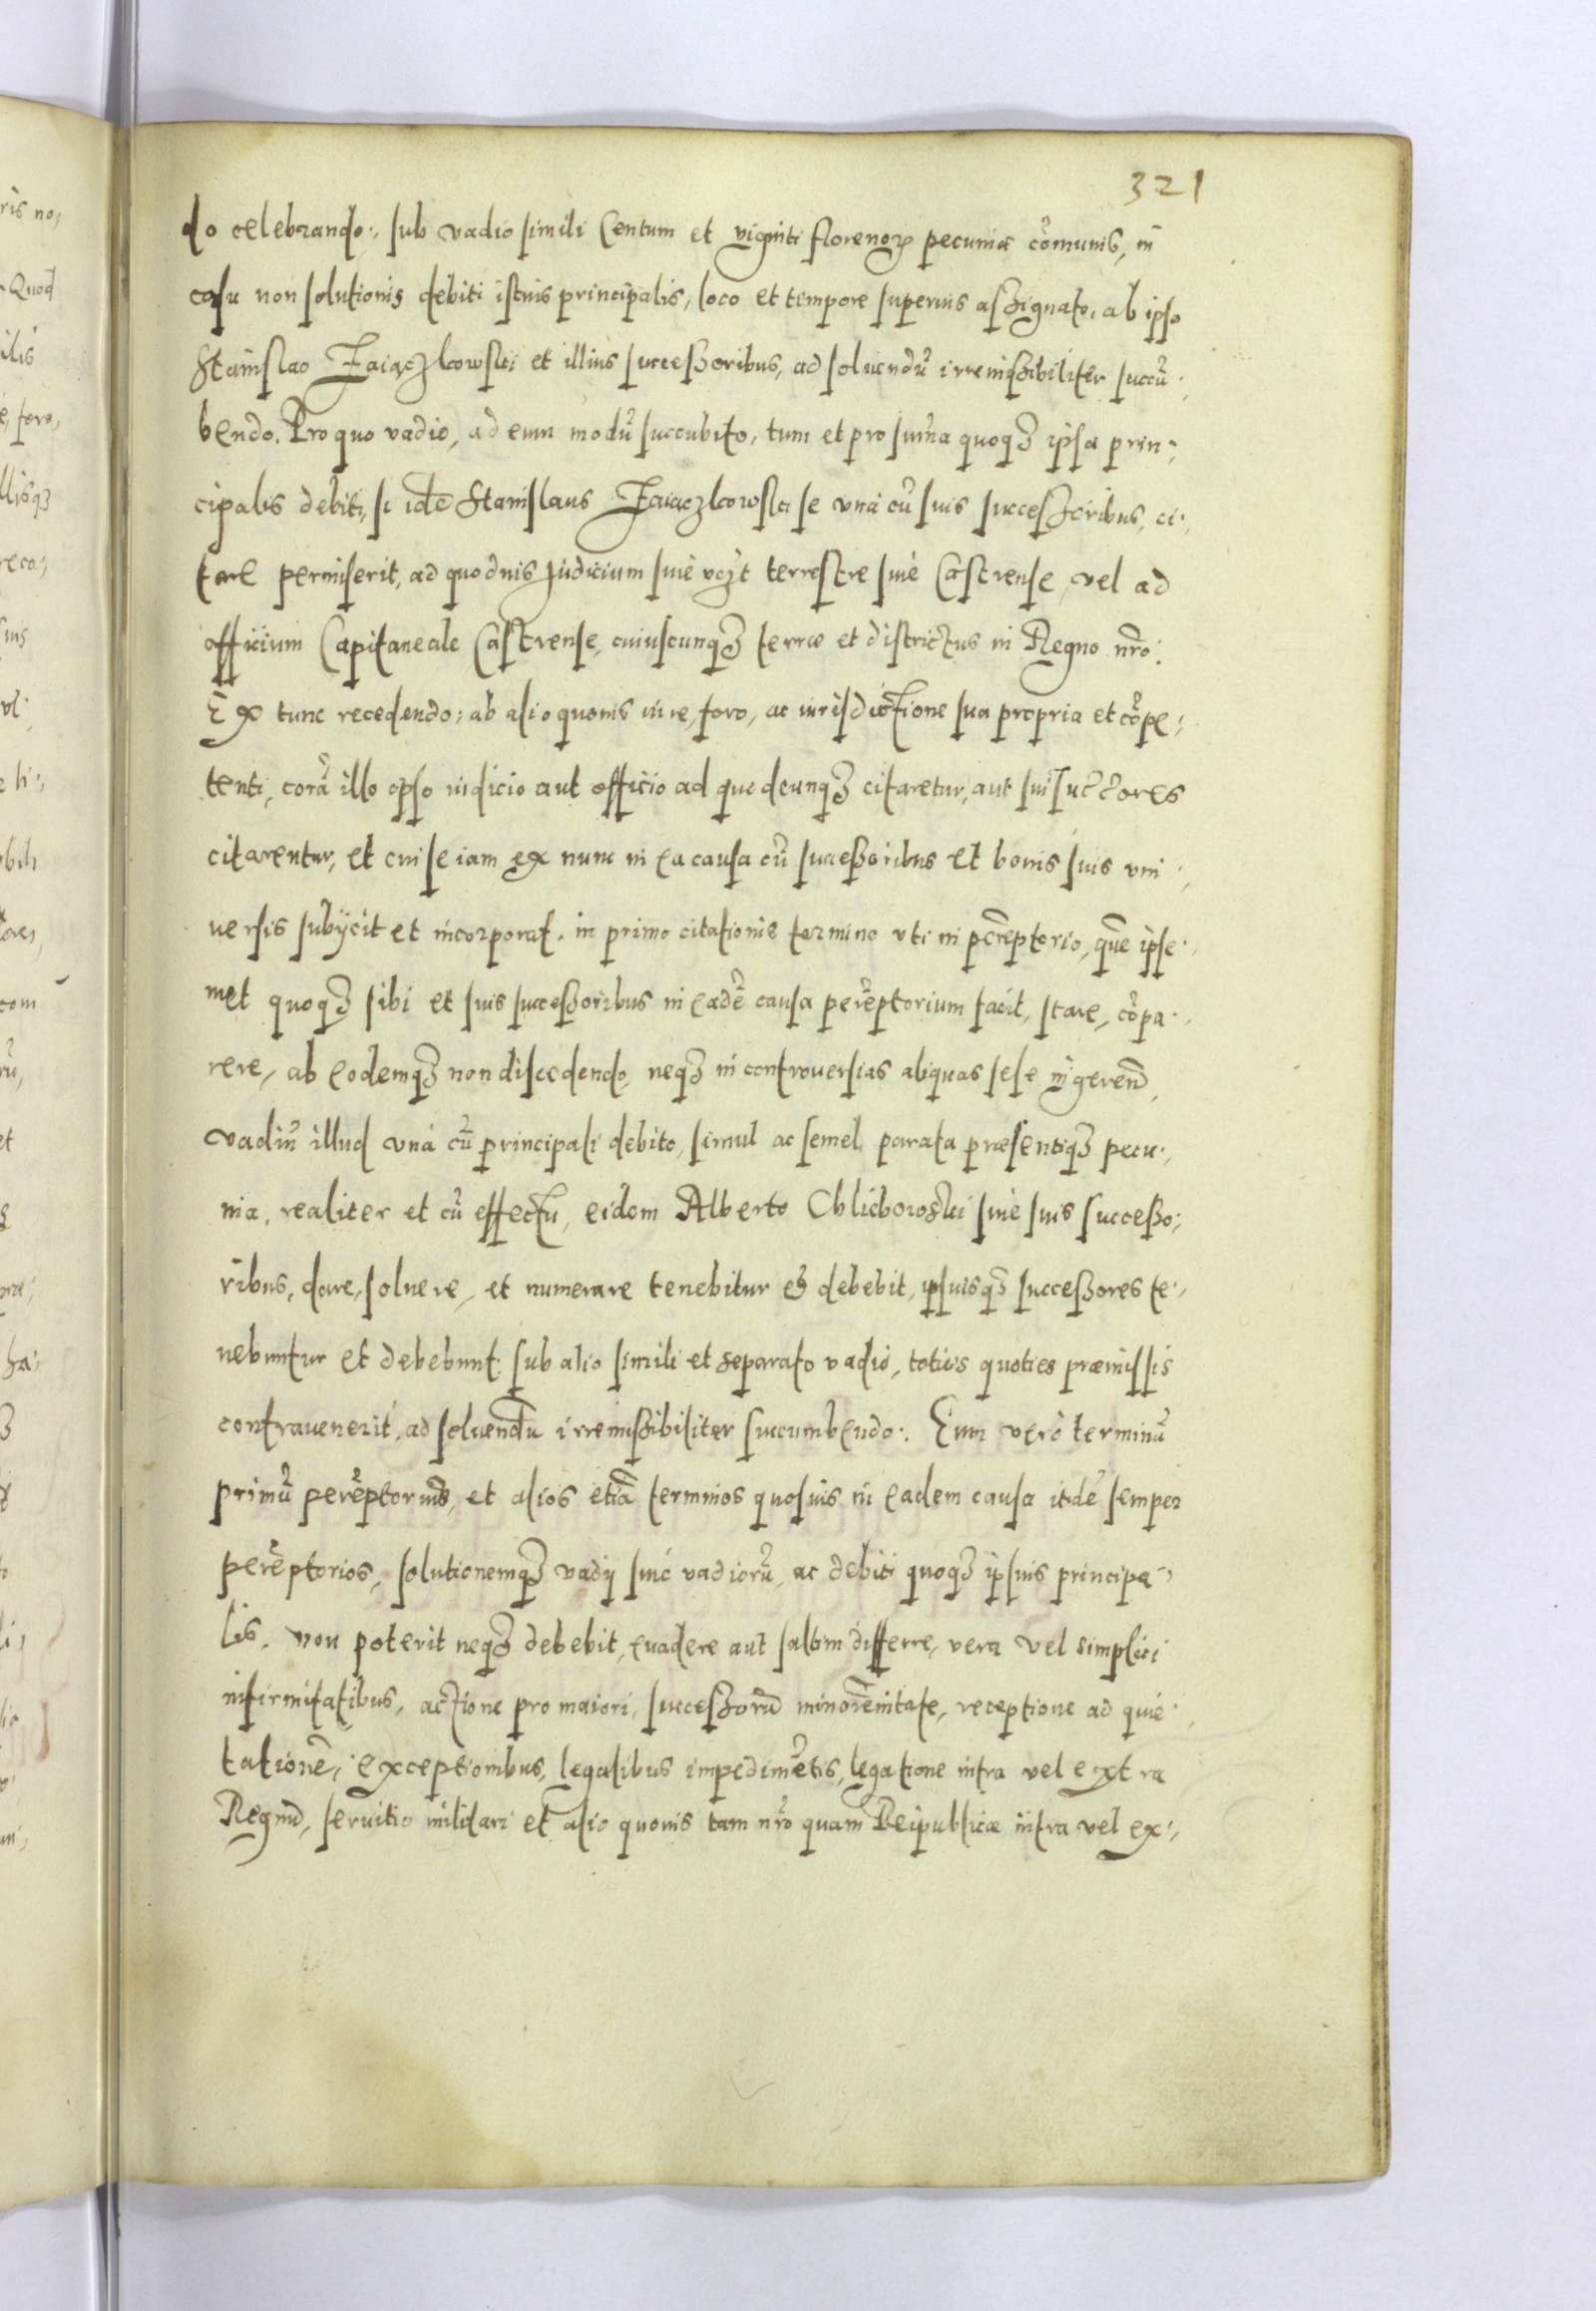 321
do celebrando:, sub vadio simili Centum et viginti florenoꝝ pecuniæ cõmunis, in
casu non solutionis debiti istius principalis, loco et tempore superius assignato, ab ipso
Stanislao Zaiączkowski et illius successoribus, ad soluendũ irremissibiliter succũ:
bendo. Pro quo vadio, ad eum modũ succubito, tum et pro sum̃a quoqꝫ ipsa prin:,
cipalis debiti, si idẽ Stanislaus Zaiączkowski se unà cũ suis successoribus, ci:,
tare permiserit, ad quoduis Judicium siuè vĕzt terrestre siuè Castrense, vel ad
officium Capitaneale Castrense, cuiuscunqꝫ terræ et districtus in Regno nr̃o:
Ex tunc recedendo: ab alio quouis iure, foro, ac iurisdictione sua propria et cõpe:,
tenti, corã illo ipso iudicio aut officio ad quodcunqꝫ citaretur, aut sui succ̃ores
citarentur, et cui se iam ex nunc in ea causa cũ successoribus et bonis suis vni:,
uersis subÿcit et incorporat, in primo citationis termino vti in perẽptorio, quẽ ipse:
met quoqꝫ sibi et suis successoribus in eadẽ causa perẽptorium facit, stare, cõpa:
rere, ab eodemqꝫ non discedendo, neqꝫ in controuersias aliquas sese ingerend̃,
vadiũ illud vnà cũ principali debito, simul ac semel parata præsentiqꝫ pecu:,
nia, realiter et cũ effectu, eidem Alberto Chlieborowski siuè suis successo:,
ribus, dare, soluere, et numerare tenebitur et debebit, ipsiusqꝫ successores te:,
nebuntur et debebunt sub alio simili et separato vadio, toties quoties præmissis
contrauenerit, ad soluendũ irremissibiliter succumbendo:. Eum verò terminũ
primũ perẽptoriũ, et alios etiã terminos quosuis in eadem causa itidẽ semper
perẽptorios, solutionemqꝫ vadÿ siuè vadiorũ, ac debiti quoqꝫ ipsius principa:,
lis, non poterit neqꝫ debebit, euadere aut saltim differre, vera vel simplici
infirmitatibus, actione pro maiori, successorũ minorẽnitate, receptione ad quie:,
tationẽ, exceptionibus, legalibus impedimẽtis, legatione intra vel extra
Regnũ, seruitio militari et alio quouis tam nr̃o quam Reipublicæ intra vel ex:,